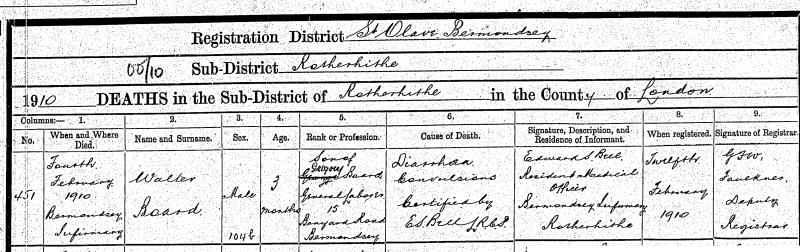 Registration District St Olave Bermondsey
00/10 Sub-District Rotherhithe
1910 DEATHS in the Sub-District of Rotherhithe in the County of London
Columns:— 1. 2. 3. 4. 5. 6. 7. 8. 9.
No. When and Where Died. Name and Surname. Sex. Age. Rank or Profession. Cause of Death. Signature, Description, and Residence of Informant. When registered. Signature of Registrar.
451
Fourth
February
1910
Bermondsey
Infirmary
Walter
Board
Male
1046
3
months
Son of
Gregory
Board,
General Laborer
15
Banyard Road
Bermondsey
Diarrhœa
Convulsions
Certified by
E S Bell L.R.C.S.
Edward S. Bell
Resident Medical
Officer
Bermondsey Infirmary
Rotherhithe
Twelfth
February
1910
Faulkner
Deputy
Registrar